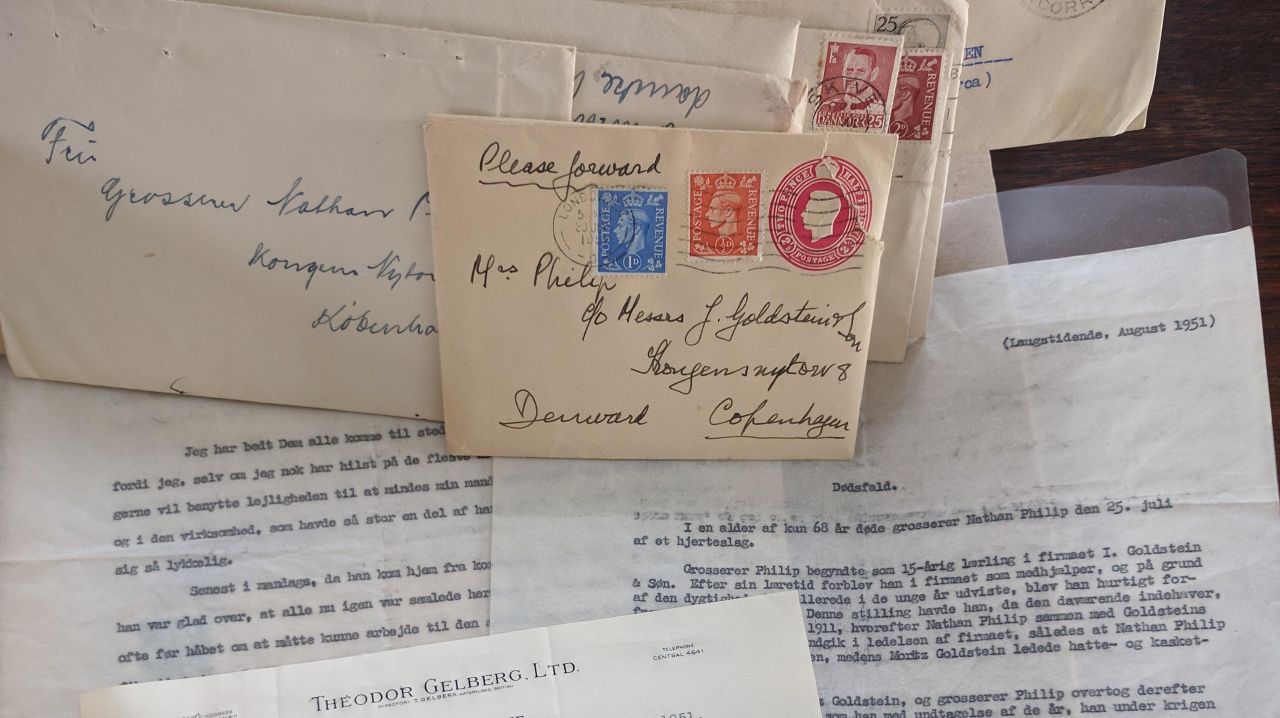 Fru
Grosserer Nathan
Kongens Nytor
Københa
danske
25
DANMARK 25
SKIVE
REVENUE
CORK
EN
rca)
Please forward
LONDON
POSTAGE REVENUE
1D
POSTAGE REVENUE
½D
TWO PENCE HALFPENNY
2½ 2½
POSTAGE
Mrs Philip
c/o Messrs J. Goldstein & Son
Kongensnytorv 8
Denmark Copenhagen
Jeg har bedt Dem alle komme til sted
fordi jeg, selv om jeg nok har hilst på de fleste
gerne vil benytte lejligheden til at mindes min mand
og i den virksomhed, som havde så stor en del af ha
sig så lykkelig.
Senest i mandags, da han kom hjem fra ko
han var glad over, at alle nu igen var samlede her
ofte før håbet om at måtte kunne arbejde til den
(Laugstidende, August 1951)
Dødsfald.
I en alder af kun 68 år døde grosserer Nathan Philip den 25. juli
af et hjerteslag.
Grosserer Philip begyndte som 15-årig lærling i firmaet I. Goldstein
& Søn. Efter sin læretid forblev han i firmaet som medhjælper, og på grund
af den dygtighed llerede i de unge år udviste, blev han hurtigt for-
Denne stilling havde han, da den daværende indehaver,
1911, hvorefter Nathan Philip sammen med Goldsteins
ndgik i ledelsen af firmaet, således at Nathan Philip
en, medens Moritz Goldstein ledede hatte- og kasket-
Goldstein, og grosserer Philip overtog derefter
som han med undtagelse af de år, han under krigen
THEODOR GELBERG, LTD.
DIRECTOR: T. GELBERG, NATURALISED BRITISH
TELEPHONE
CENTRAL 4641
ADDRESS
1951.